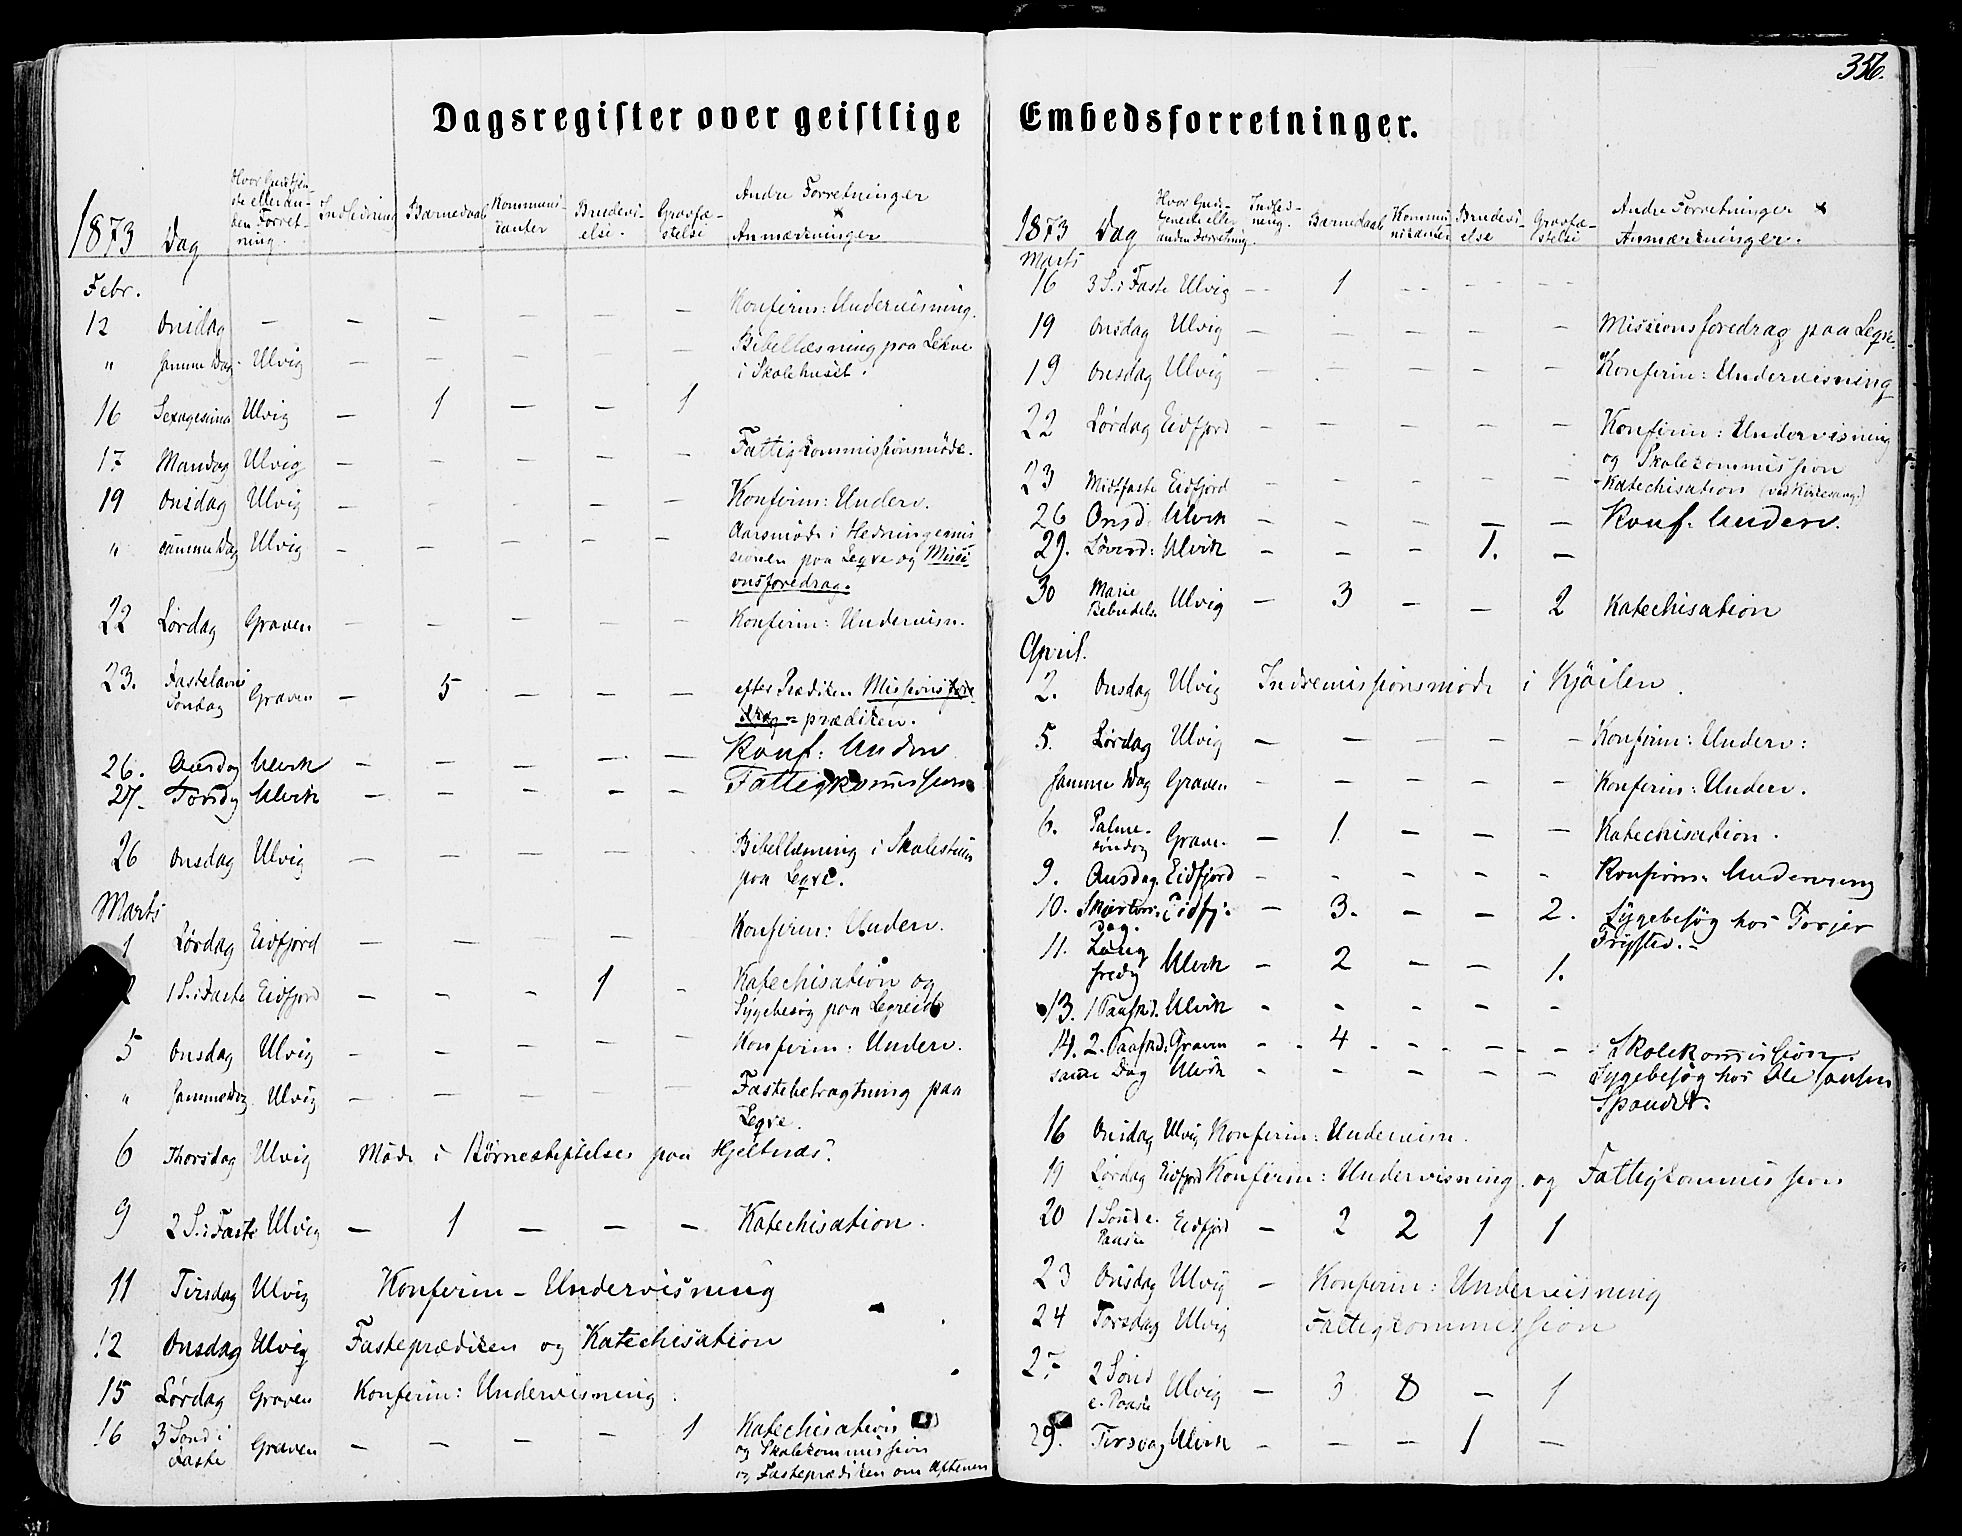 356.
Dagsregister over geistlige Embedsforretninger.
1873 Dag Hvor Gudstjeneste eller anden Forretning. Indledning Barnedaab Kommunikanter Brudevielse. Gravfæstelse Andre Forretninger & Anmærkninger
Febr.
12 Onsdag — — — — — — Konfirm: Undervisning.
" Samme Dag Ulvig — — — — — Bibellæsning paa Lekve
i Skolehuset.
16 Sexagesima Ulvig — 1 — — 1
17 Mandag Ulvig — — — — — Fattigkommissionsmøde.
19 Onsdag Ulvig — — — — — Konfirm: Underv.
" samme Dag Ulvig — — — — — Aarsmøde i Hedningemis
sionen paa Leqve og Missi-
onsforedrag.
22 Lørdag Graven — — — — — Konfirm: Undervisn.
23. Fastelavns
Søndag Graven — 5 — — — efter Prædiken Missions
prædiken.
26. Onsdag Ulvik — — — — — Konf: Underv
27. Torsdg Ulvik — — — — — Fattigkomission
26 Onsdag Ulvig — — — — Bibellæsning i Skolestuen
paa Leqve.
Marts
1 Lørdag Eidfjord — — — — — Konfirm: Underv.
1 S. i Faste Eidfjord — — — 1 - Katechisation og
Sygebesøg paa Legreid
5 Onsdag Ulvig — — — — — Konfirm: Underv.
" Samme Dag Ulvig — — — — — Fastebetragtning paa
Leqve.
6 Thorsdag Ulvig Møde i Børnestiftelses paa Hjeltnæs.
9 2 S. i Faste Ulvig — 1 — — — Katechisation.
11 Tirsdag Ulvig Konfirm - Undervisning
12 Onsdag Ulvig Fasteprædiken og Katechisation
15 Lørdag Graven Konfirm: Undervisning.
16 3 Sønd i
Faste Graven — — — — 1 Katechisation
og Skolekommission
og Fasteprædiken om Aftenen
1873 Dag Hvor Gudstjeneste eller anden Forretning. Indledning. Barnedaab Kommunikanter Brudevielse Gravfæstelse Andre Forretninger & Anmærkninger.
Marts
16 3 S. i Faste Ulvig — 1 — — —
19 Onsdag Ulvig — — — — — Missionsforedrag paa Leqve.
19 Onsdag Ulvig — — — — — Konfirm: Undervisning
22 Lørdag Eidfjord — — — — — Konfirm: Undervisning
og Skolekommission
23 Midtfaste Eidfjord — — — — — Katechisation (ved Kirkesang.)
26 Onsd. Ulvik — — — — — Konf. Underv.
29. Løverd: Ulvik — — — 1. —
30 Marie
Bebudels. Ulvig — 3 — — 2 Katechisation
April.
2. Onsdag Ulvig Indremissionsmøde i Kjøilen.
5. Lørdag Ulvig — — — — — Konfirm: Underv:
Samme Dag Graven — — — — — Konfirm: Underv.
6. Palme-
søndag Grave. — 1. — — — Katechisation.
9. Onsdag. Eidfjord - - - - - Konfirm: Undervisning
10. Skjærtors-
dag. Eidfj. — 3. — — 2. Sygebesøg hos Torjer
11. Lang
fredg Ulvik — 2 — — 1.
13. 1 Paaskd. Ulvik - - - - -
14. 2. Paaskd: Graven - 4 - - - Skolekomission.
samme Dag Ulvik - - - - - Sygebesøg hos Ole
16 Onsdag Ulvig Konfirm: Undervisn.
19 Lørdag Eidfjord Konfirm: Undervisning og Fattigkommission
20 1 Sønd e.
Paaske Eidfjord — 2 2 1 1
23 Onsdag Ulvig — Konfirm: Undervisning
24 Torsdag Ulvig Fattigkommission
27 2 Sønd
e. Paaske Ulvig — 3 8 — 1
29. Tirsdag Ulvik - — — 1 —